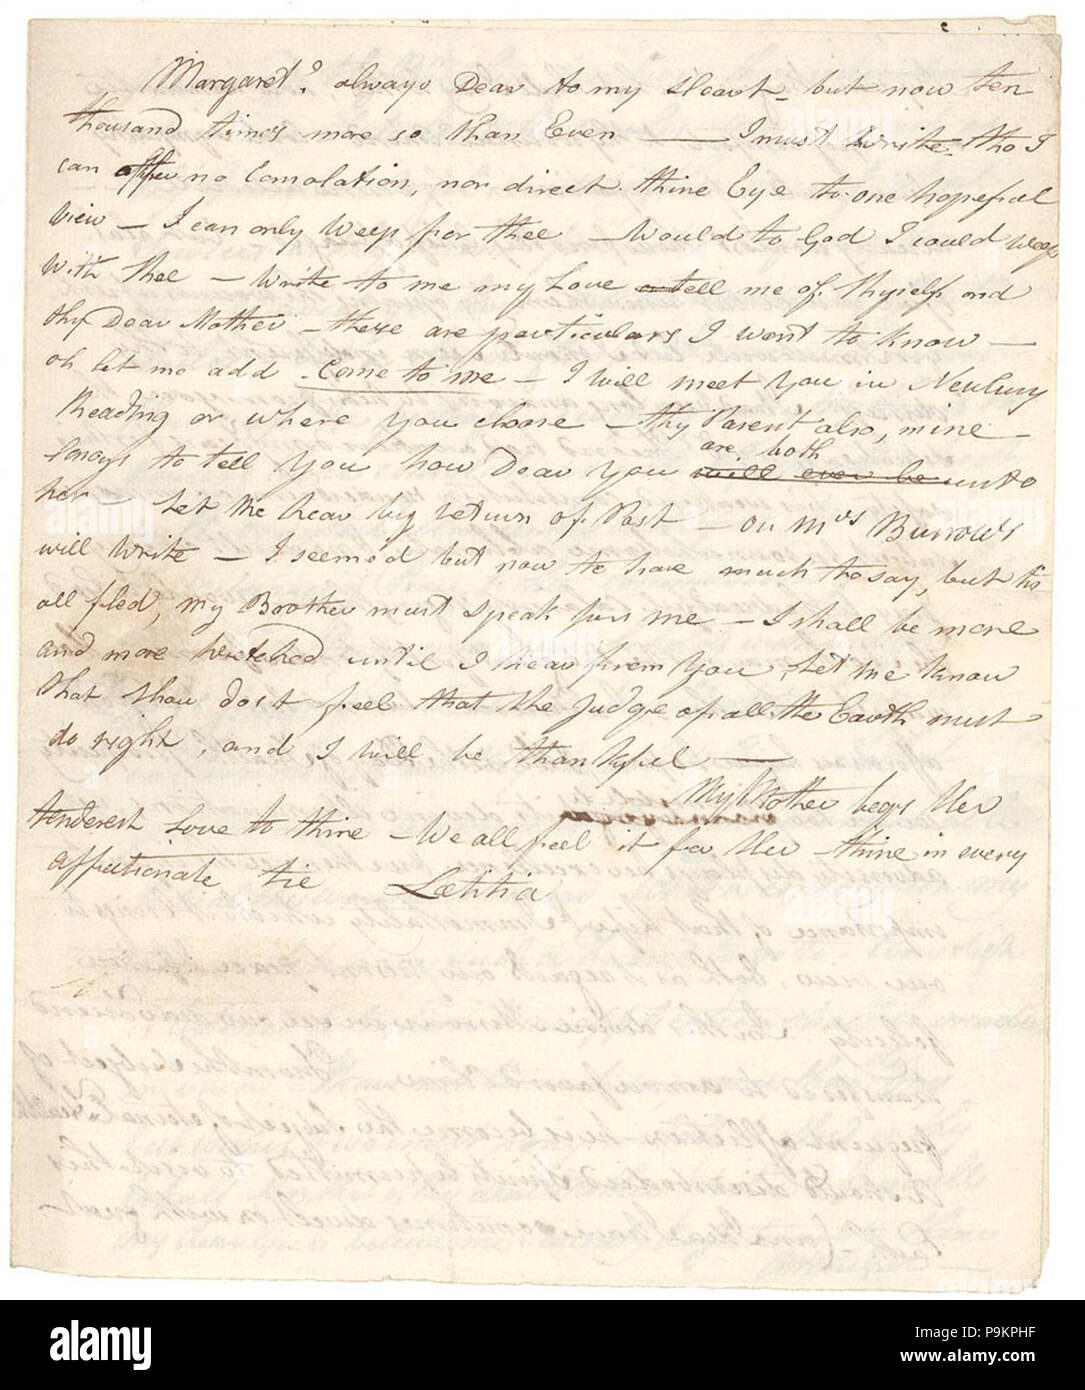 Margaret! always Dear to my Heart - but now ten
thousand times more so than Ever —— I must write - tho I
can offer no Consolation, nor direct thine Eye to one hopeful
view — I can only Weep for thee — Would to God I could weep
with thee — Write to me my Love a tell me of thyself and
thy Dear Mother — these are particulars I want to know —
oh let me add - Come to me — I will meet you in Newbury
Reading or where you choose — thy Parent also, mine —
longs to tell you how Dear you will ever be are both unto
her — Let me hear by return of Post — or Mrs Burrows
will write — I seemed but now to have much to say, but tis
all fled, my Brother must speak for me — I shall be more
and more wretched until I hear from you, let me know
that thou dost feel that the Judge of all the Earth must
do right, and I will be thankful ——
My Mother begs Her
tenderest Love to thine — We all feel it for Her — thine in every
affectionate tie Lætitia
alamy
Image ID: P9KPHF
www.alamy.com